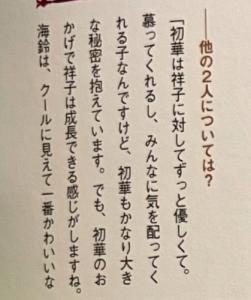 ──他の2人については？
「初華は祥子に対してずっと優しくて。
慕ってくれるし、みんなに気を配ってく
れる子なんですけど、初華もかなり大き
な秘密を抱えています。でも、初華のお
かげで祥子は成長できる感じがしますね。
海鈴は、クールに見えて一番かわいいな